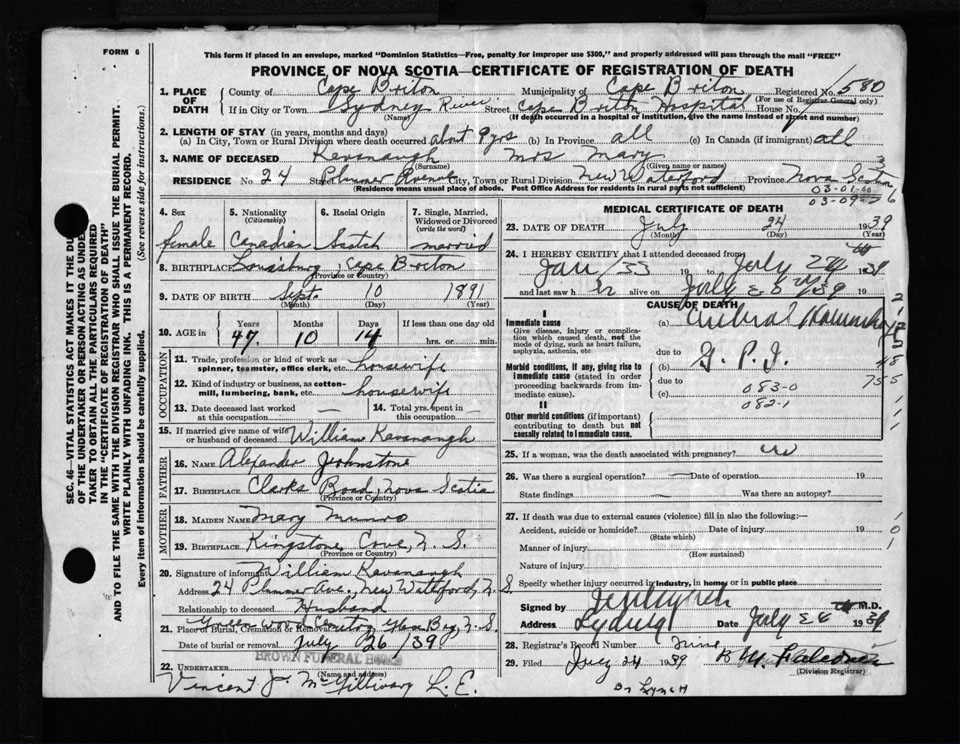 FORM 6
This form if placed in an envelope, marked "Dominion Statistics—Free, penalty for improper use $300," and properly addressed will pass through the mail "FREE"
PROVINCE OF NOVA SCOTIA—CERTIFICATE OF REGISTRATION OF DEATH
SEC. 46—VITAL STATISTICS ACT MAKES IT THE DU
OF THE UNDERTAKER OR PERSON ACTING AS UNDE
TAKER TO OBTAIN ALL THE PARTICULARS REQUIRED
IN THE "CERTIFICATE OF REGISTRATION OF DEATH"
AND TO FILE THE SAME WITH THE DIVISION REGISTRAR WHO SHALL ISSUE THE BURIAL PERMIT.
WRITE PLAINLY WITH UNFADING INK. THIS IS A PERMANENT RECORD.
Every item of information should be carefully supplied. (See reverse side for instructions.)
1. PLACE OF DEATH
County of Cape Briton Municipality of Cape Briton Registered No. 580
(For use of Registrar General only)
If in City or Town Sydney River Street Cape Briton Hospital House No.
(Name) (If death occurred in a hospital or institution, give the name instead of street and number)
2. LENGTH OF STAY (in years, months and days)
(a) In City, Town or Rural Division where death occurred about 9 yrs (b) In Province all (c) In Canada (if immigrant) all
3. NAME OF DECEASED Kavanaugh Mrs Mary
(Surname) (Given name or names)
RESIDENCE No. 24 Street Plummer Avenue City, Town or Rural Division New Waterford Province Nova Scotia
(Residence means usual place of abode. Post Office Address for residents in rural parts not sufficient)
03-01-
03-09-
4. Sex 5. Nationality 6. Racial Origin 7. Single, Married, Widowed or Divorced
(Citizenship) (write the word)
female Canadian Scotch married
8. BIRTHPLACE Louisburg, Cape Briton
(Province or Country)
9. DATE OF BIRTH Sept. 10 1891
(Month) (Day) (Year)
10. AGE in Years Months Days If less than one day old
47 10 14 hrs. or min.
OCCUPATION
11. Trade, profession or kind of work as spinner, teamster, office clerk, etc. housewife
12. Kind of industry or business, as cotton-mill, lumbering, bank, etc. housewife
13. Date deceased last worked at this occupation — 14. Total yrs. spent in this occupation —
15. If married give name of wife or husband of deceased William Kavanaugh
FATHER
16. NAME Alexander Johnstone
17. BIRTHPLACE Clarks Road, Nova Scotia
(Province or Country)
MOTHER
18. MAIDEN NAME Mary Munro
19. BIRTHPLACE Kingstone Cove, N. S.
(Province or Country)
20. Signature of informant William Kavanaugh
Address 24 Plummer Ave., New Waterford, N. S.
Relationship to deceased Husband
21. Place of Burial, Cremation or Removal Greenwood Cemetry Glace Bay, N. S.
Date of burial or removal July 26/39
BROWN FUNERAL HOME
22. UNDERTAKER
(Name and address)
Vincent J. McGillivary L. E.
MEDICAL CERTIFICATE OF DEATH
23. DATE OF DEATH July 24 1939
(Month) (Day) (Year)
24. I HEREBY CERTIFY that I attended deceased from
Jan/33 19 to July 24 1939
and last saw h alive on July 19
CAUSE OF DEATH
I
Immediate cause
Give disease, injury or complication which caused death, not the mode of dying, such as heart failure, asphyxia, asthenia, etc
(a) Cerebral
due to
(b) G. P. I.
due to
(c)
083-0
082-1
Morbid conditions, if any, giving rise to immediate cause (stated in order proceeding backwards from immediate cause).
II
Other morbid conditions (if important) contributing to death but not causally related to immediate cause.
25. If a woman, was the death associated with pregnancy? no
26. Was there a surgical operation? — Date of operation 19
State findings — Was there an autopsy?
27. If death was due to external causes (violence) fill in also the following:—
Accident, suicide or homicide? Date of injury 19
(State which)
Manner of injury
(How sustained)
Nature of injury
Specify whether injury occurred in industry, in home, or in public place
Signed by M.D.
Address Sydney Date July 1939
28. Registrar's Record Number Nine
29. Filed July 24 1939
(Division Registrar)
Dr Lynch